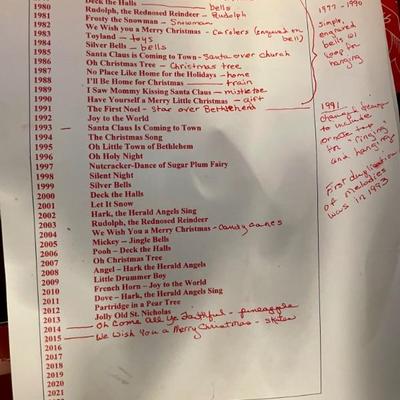 1980 Deck the Halls — bells
1981 Rudolph, the Rednosed Reindeer - Rudolph
1982 Frosty the Snowman - Snowman
1983 We Wish you a Merry Christmas - Carolers (engraved on bell)
1984 Toyland - toys
1984 Silver Bells - bells
1985 Santa Claus is Coming to Town - Santa over church
1986 Oh Christmas Tree - Christmas tree
1987 No Place Like Home for the Holidays - home
1988 I'll Be Home for Christmas — train
1989 I Saw Mommy Kissing Santa Claus - mistletoe
1990 Have Yourself a Merry Little Christmas - gift
1991 The First Noel - Star over Bethlehem
1992 Joy to the World
1993 — Santa Claus Is Coming to Town
1994 The Christmas Song
1995 Oh Little Town of Bethlehem
1996 Oh Holy Night
1997 Nutcracker-Dance of Sugar Plum Fairy
1998 Silent Night
1999 Silver Bells
2000 Deck the Halls
2001 Let It Snow
2002 Hark, the Herald Angels Sing
2003 Rudolph, the Rednosed Reindeer
2004 We Wish You a Merry Christmas - Candy canes
2005 Mickey – Jingle Bells
2006 Pooh – Deck the Halls
2007 Oh Christmas Tree
2008 Angel – Hark the Herald Angels
2009 Little Drummer Boy
2010 French Horn – Joy to the World
2011 Dove – Hark, the Herald Angels Sing
2012 Partridge in a Pear Tree
2013 Jolly Old St. Nicholas
2014 — Oh Come All Ye Faithful - pineapple
2015 — We Wish You a Merry Christmas - skates
2016
2017
2018
2019
2020
2021
1977 - 1990
Simple,
engraved
bells w/
loop for
hanging
1991
to include
ornate top
for "ringing"
and hanging
First duplication
of melodies
was in 1993